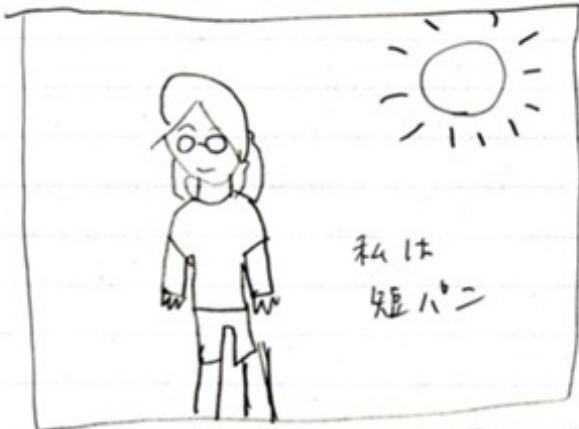 私は
短パン